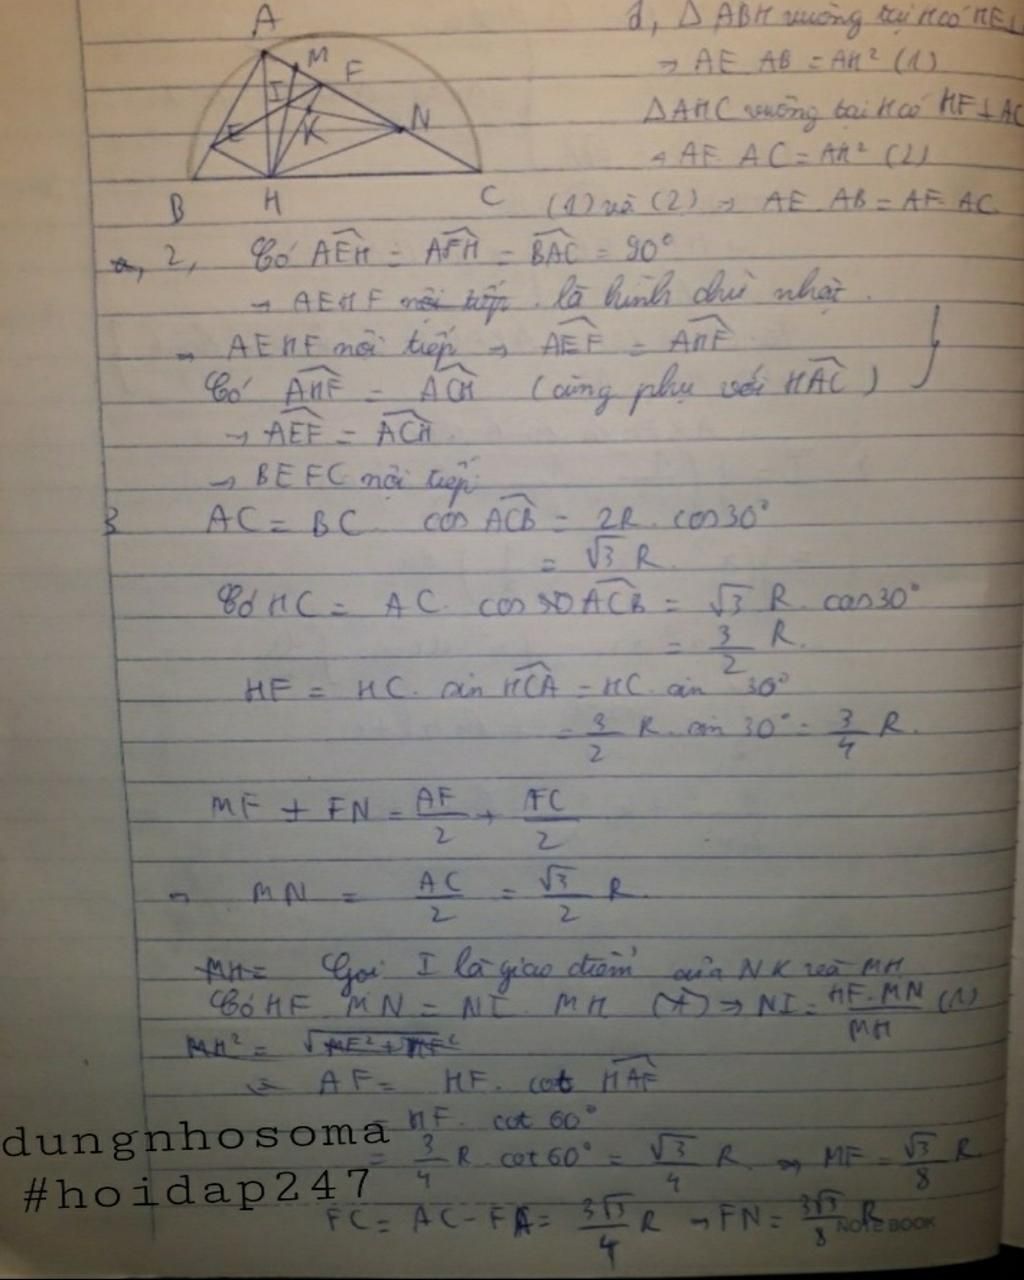 A
M
F
I
E
K
N
B
H
C
1, Δ ABH vuông tại H có HE⊥
→ AE AB = AH² (1)
ΔAHC vuông tại H có HF⊥AC
→ AF AC = AH² (2)
(1) và (2) → AE AB = AF AC
2, Có AEH = AFH = BAC = 90°
→ AEHF là hình chữ nhật.
→ AEHF nội tiếp → AEF = AHF
Có AHF = ACH (cùng phụ với HAC)
→ AEF = ACH
→ BEFC nội tiếp
3 AC = BC cos ACB = 2R. cos30°
= √3 R
Có HC = AC. cos ACB = √3 R. cos30°
= 3/2 R.
HF = HC. sin HCA = HC. sin 30°
= 3/2 R. sin 30° = 3/4 R.
MF + FN = AF/2 + FC/2
→ MN = AC/2 = √3/2 R.
Gọi I là giao điểm của NK và MH
Có HF MN = NI. MH (*) → NI = HF.MN/MH (1)
AF = HF. cot HAF
= HF. cot 60°
= 3/4 R. cot60° = √3/4 R → MF = √3/8 R
FC = AC - FA = 3√3/4 R → FN = 3√3/8 R
NOTE BOOK
dungnhosoma
#hoidap247